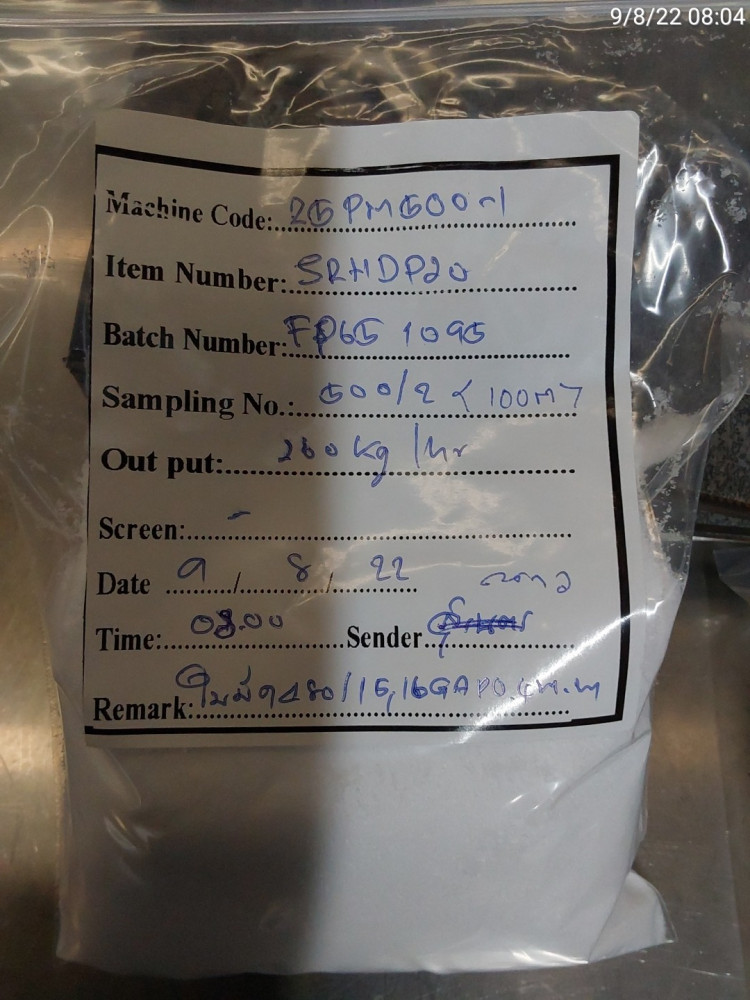 9/8/22 08:04
Machine Code: 25PM500-1
Item Number: SRHDP20
Batch Number: FP65 1095
Sampling No.: 500/2 < 100m >
Out put: 260 kg/hr
Screen: -
Date 9 / 8 / 22
Time: 08.00 Sender
Remark: ใบมีด 480/15,16 GAP0